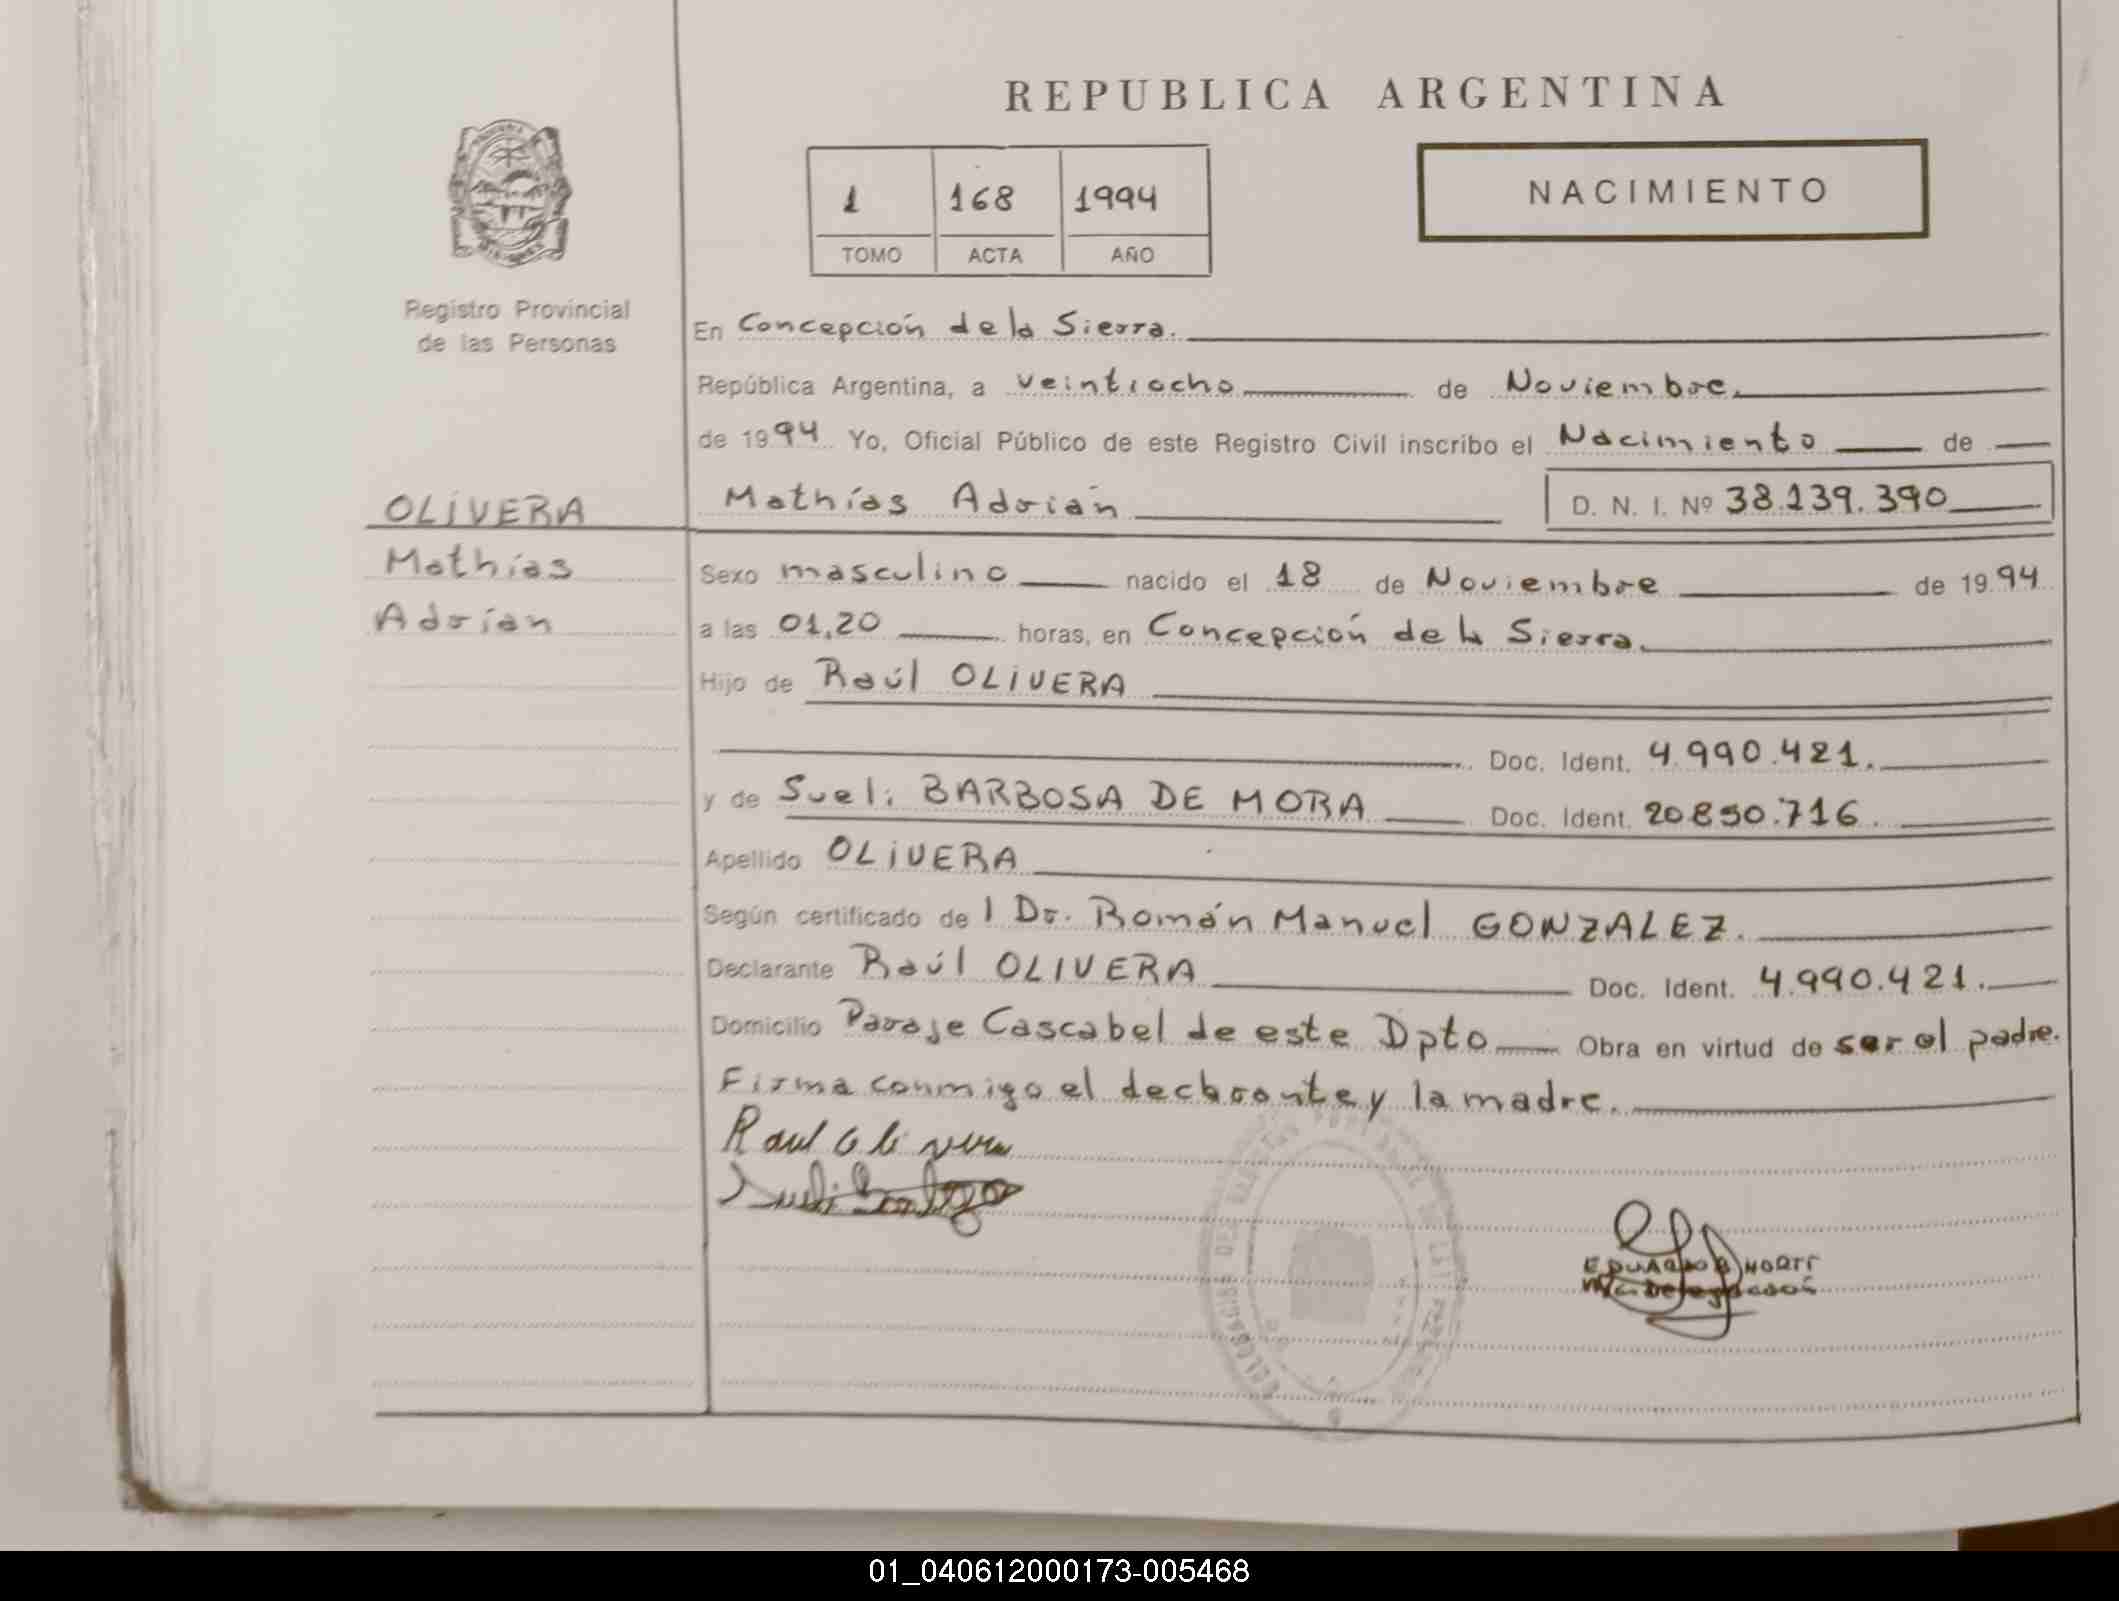 REPUBLICA ARGENTINA
1 168 1994
TOMO ACTA AÑO
NACIMIENTO
Registro Provincial
de las Personas
En Concepción de la Sierra.
República Argentina, a veintiocho de Noviembre.
de 1994 Yo, Oficial Público de este Registro Civil inscribo el Nacimiento de
OLIVERA
Mathías Adrián D. N. I. Nº 38.139.390
Mathías
Adrián
Sexo masculino nacido el 18 de Noviembre de 1994
a las 01,20 horas, en Concepción de la Sierra.
Hijo de Raúl OLIVERA
Doc. Ident. 4.990.421.
y de Sueli BARBOSA DE MORA Doc. Ident. 20850.716.
Apellido OLIVERA
Según certificado de l Dr. Román Manuel GONZALEZ.
Declarante Raúl OLIVERA Doc. Ident. 4.990.421.
Domicilio Paraje Cascabel de este Dpto Obra en virtud de ser el padre.
Firma conmigo el declarante y la madre.
Raul Olivera
EDUARDO
01_040612000173-005468